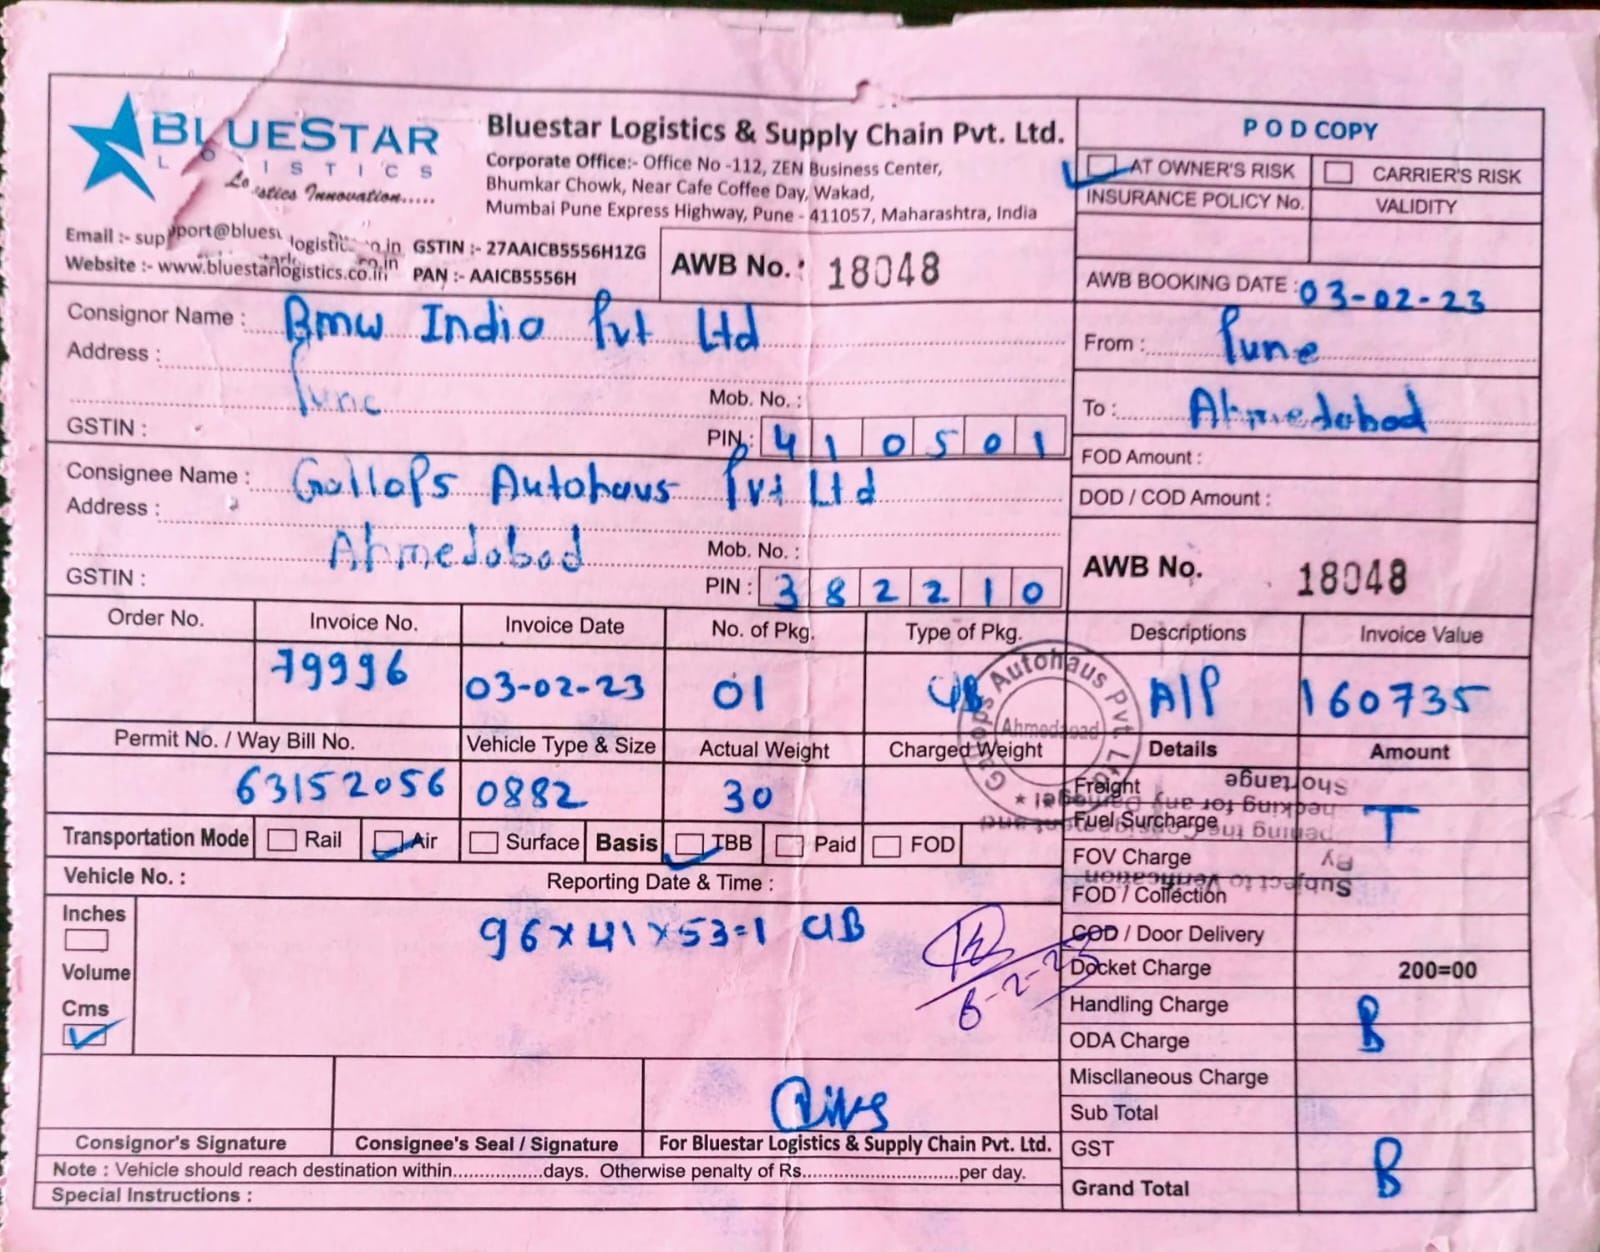 BLUESTAR
LOGISTICS
Logistics Innovation.....
Bluestar Logistics & Supply Chain Pvt. Ltd.
Corporate Office:- Office No -112, ZEN Business Center,
Bhumkar Chowk, Near Cafe Coffee Day, Wakad,
Mumbai Pune Express Highway, Pune - 411057, Maharashtra, India
Email :- support@bluestarlogistics.co.in GSTIN :- 27AAICB5556H1ZG
Website :- www.bluestarlogistics.co.in PAN :- AAICB5556H
AWB No. : 18048
POD COPY
AT OWNER'S RISK CARRIER'S RISK
INSURANCE POLICY No. VALIDITY
AWB BOOKING DATE : 03-02-23
From : Pune
To : Ahmedabad
FOD Amount :
DOD / COD Amount :
AWB No. 18048
Consignor Name : Bmw India Pvt Ltd
Address :
Pune Mob. No. :
GSTIN : PIN : 410501
Consignee Name : Gallops Autohaus Pvt Ltd
Address :
Ahmedabad Mob. No. :
GSTIN : PIN : 382210
Order No. Invoice No. Invoice Date No. of Pkg. Type of Pkg. Descriptions Invoice Value
79996 03-02-23 01 CB A/P 160735
Permit No. / Way Bill No. Vehicle Type & Size Actual Weight Charged Weight Details Amount
63152056 0882 30
Gallops Autohaus Pvt. Ltd.
Ahmedabad
Subject to Verification
By
Shortange
Transportation Mode Rail Air Surface Basis TBB Paid FOD
Vehicle No. : Reporting Date & Time :
Inches
Volume
Cms
96x41x53=1 CB
6-2-23
Freight
Fuel Surcharge T
FOV Charge
FOD / Collection
COD / Door Delivery
Docket Charge 200=00
Handling Charge B
ODA Charge
Miscllaneous Charge
Sub Total
GST B
Grand Total
Consignor's Signature Consignee's Seal / Signature For Bluestar Logistics & Supply Chain Pvt. Ltd.
Note : Vehicle should reach destination within...............days. Otherwise penalty of Rs..........................per day.
Special Instructions :